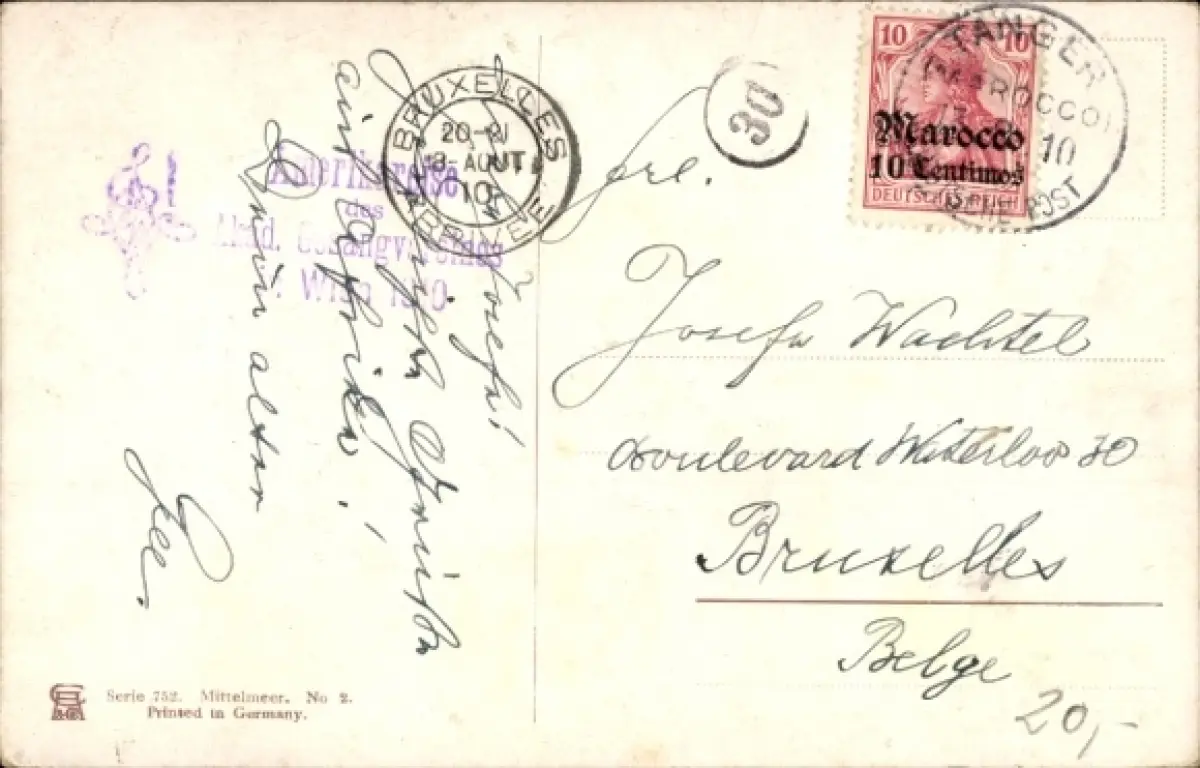 Josefa!
Herzlichste Grüße
aus Afrika!
Dein alter
Amerikareise
des
Akad. Gesangvereines
Wien 1910
BRUXELLES
20-21
13-AOUT
10
ARRIVEE
30
10 10
Marocco
10 Centimos
DEUTSCHES REICH
TANGER
(MAROCCO)
10
DEUTSCHE POST
Frl.
Josefa Wachtel
Boulevard Waterloo 30
Bruxelles
Belge
20,-
Serie 752. Mittelmeer. No 2.
Printed in Germany.